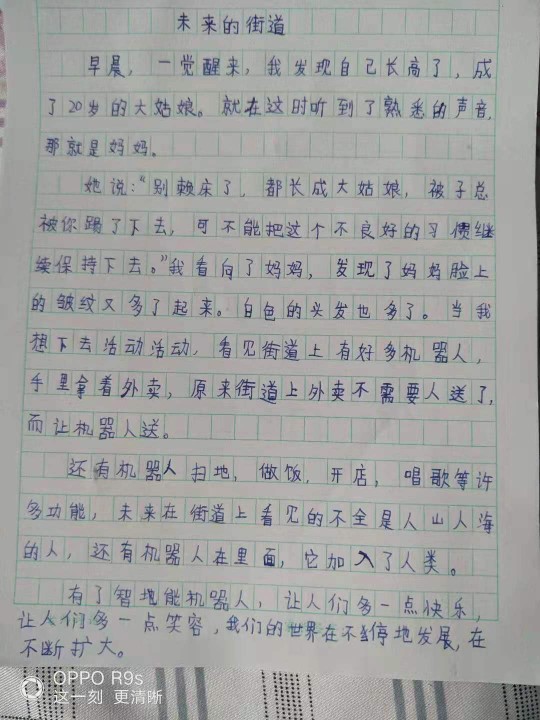 未来的街道
早晨，一觉醒来，我发现自己长高了，成
了20岁的大姑娘。就在这时听到了熟悉的声音，
那就是妈妈。
她说：“别赖床了，都长成大姑娘，被子总
被你踢了下去，可不能把这个不良好的习惯继
续保持下去。”我看向了妈妈，发现了妈妈脸上
的皱纹又多了起来。白色的头发也多了。当我
想下去活动活动，看见街道上有好多机器人，
手里拿着外卖，原来街道上外卖不需要人送了，
而让机器人送。
还有机器人扫地，做饭，开店，唱歌等许
多功能，未来在街道上看见的不全是人山人海
的人，还有机器人在里面，它加入了人类。
有了智能机器人，让人们多一点快乐，
让人们多一点笑容，我们的世界在不停地发展，在
不断扩大。
OPPO R9s
这一刻 更清晰